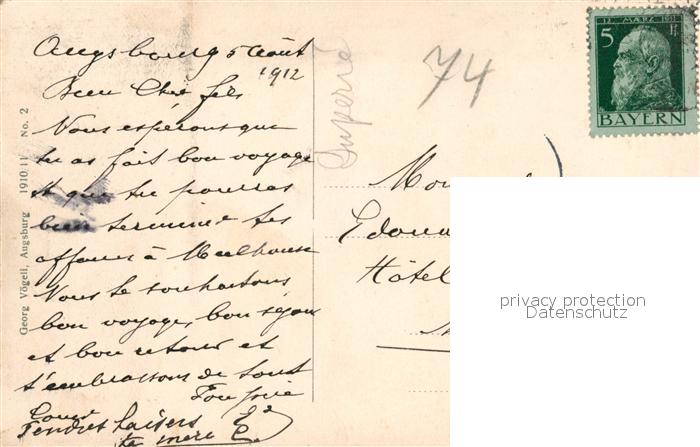 Augsbourg 5 Août
1912
Bien Cher fils
Nous espérons que
tu as fait bon voyage
et que tu pourras
bien terminer tes
affaires à Mulhouse
Nous te souhaitons
bon voyage, bon séjour
et bon retour et
t'embrassons de tout
coeur Ton père
Tendres baisers Ed
ta mère E.
Georg Vögeli, Augsburg 1910/11 No. 2
74
12. MÄRZ 1911
5 Pf
BAYERN
Edoua
Hôtel
privacy protection
Datenschutz